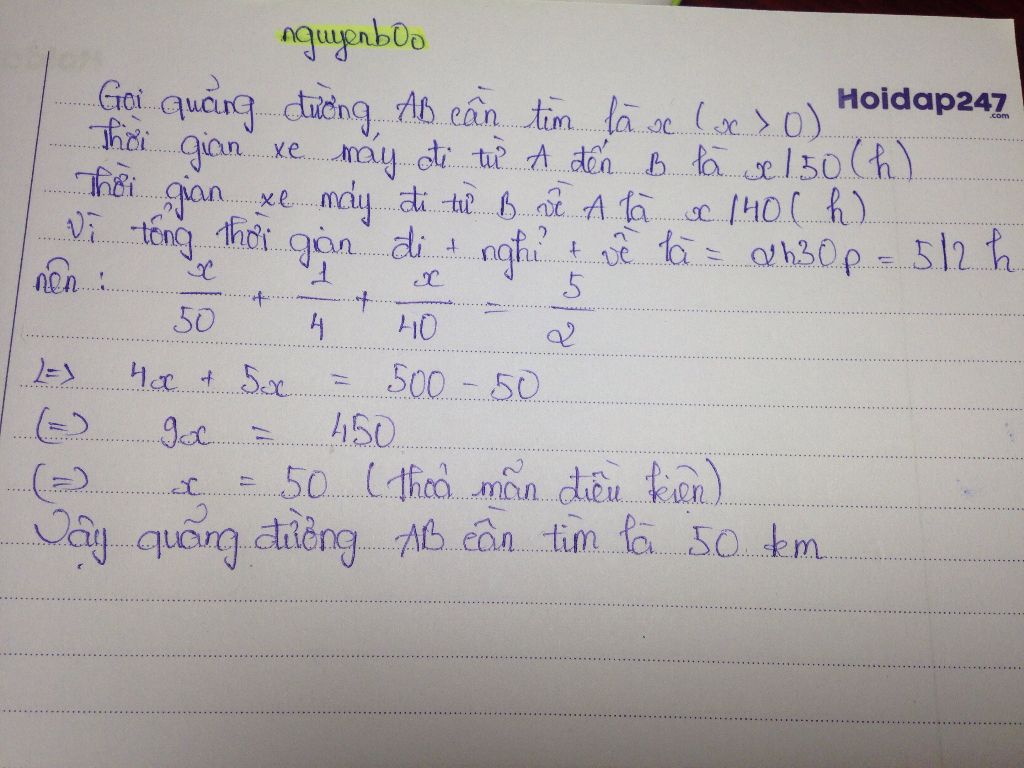 nguyenb00
Hoidap247
.com
Gọi quảng đường AB cần tìm là x (x > 0)
Thời gian xe máy đi từ A đến B là x/50 (h)
Thời gian xe máy đi từ B về A là x/40 (h)
Vì tổng thời gian đi + nghỉ + về là = 2h30p = 5/2 h
nên : x/50 + 1/4 + x/40 = 5/2
<=> 4x + 5x = 500 - 50
(=) 9x = 450
(=) x = 50 (thoả mãn điều kiện)
Vậy quảng đường AB cần tìm là 50 km